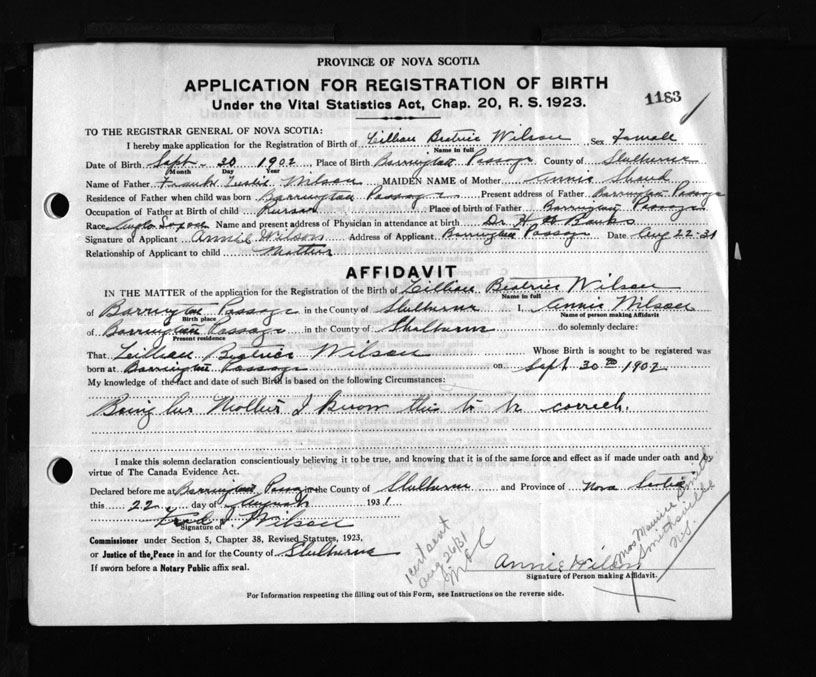 PROVINCE OF NOVA SCOTIA
APPLICATION FOR REGISTRATION OF BIRTH
Under the Vital Statistics Act, Chap. 20, R. S. 1923.
1183
TO THE REGISTRAR GENERAL OF NOVA SCOTIA:
I hereby make application for the Registration of Birth of Lillian Beatrice Wilson Sex Female
Name in full
Date of Birth Sept. 30 1902 Place of Birth Barrington Passage County of Shelburne
Month Day Year
Name of Father Frank Wilson MAIDEN NAME of Mother Annie
Residence of Father when child was born Barrington Passage Present address of Father Barrington Passage
Occupation of Father at Birth of child Place of birth of Father Barrington Passage
Race Anglo Saxon Name and present address of Physician in attendance at birth Dr H Banks
Signature of Applicant Annie Wilson Address of Applicant Barrington Passage Date Aug 22-31
Relationship of Applicant to child Mother
AFFIDAVIT
IN THE MATTER of the application for the Registration of the Birth of Lillian Beatrice Wilson
Name in full
of Barrington Passage in the County of Shelburne I, Annie Wilson
Birth place Name of person making Affidavit
of Barrington Passage in the County of Shelburne do solemnly declare:
Present residence
That Lillian Beatrice Wilson Whose Birth is sought to be registered was
born at Barrington Passage on Sept 30 1902
My knowledge of the fact and date of such Birth is based on the following Circumstances:
Being her Mother I know this to be correct.
I make this solemn declaration conscientiously believing it to be true, and knowing that it is of the same force and effect as if made under oath and by
virtue of The Canada Evidence Act.
Declared before me at Barrington Passage in the County of Shelburne and Province of Nova Scotia
this 22 day of August 1931
Fred I. Wilson
Signature of
Commissioner under Section 5, Chapter 38, Revised Statutes, 1923,
or Justice of the Peace in and for the County of Shelburne
If sworn before a Notary Public affix seal.
1 cert sent
Aug 26/31
Annie Wilson
Signature of Person making Affidavit.
Mrs Maurice Smith
Smithsville
N.S.
For Information respecting the filling out of this Form, see Instructions on the reverse side.